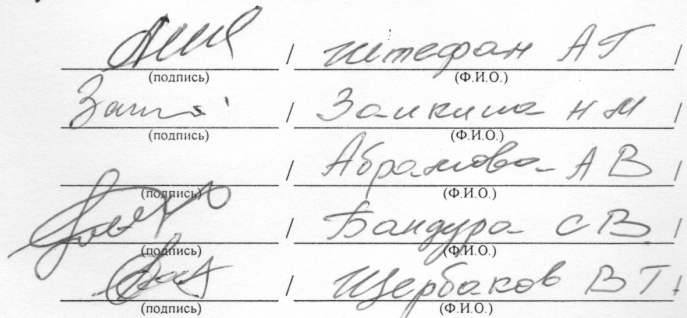 / Штефан А Г /
(подпись) (Ф.И.О.)
/ Заикина Н М /
(подпись) (Ф.И.О.)
/ Абрамова А В /
(подпись) (Ф.И.О.)
/ Бандура С В /
(подпись) (Ф.И.О.)
/ Щербаков В Г /
(подпись) (Ф.И.О.)